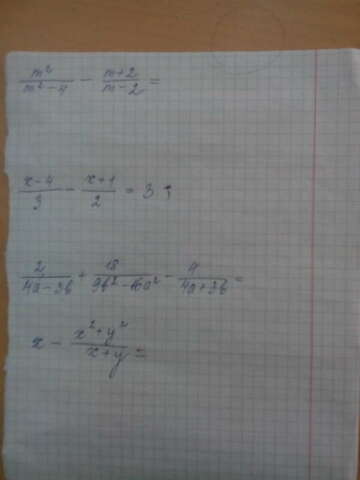 m²/(m²-4) - (m+2)/(m-2) =
(x-4)/3 - (x+1)/2 = 3 ;
2/(4a-3b) + 18/(9b²-16a²) - 4/(4a+3b) =
x - (x²+y²)/(x+y) =